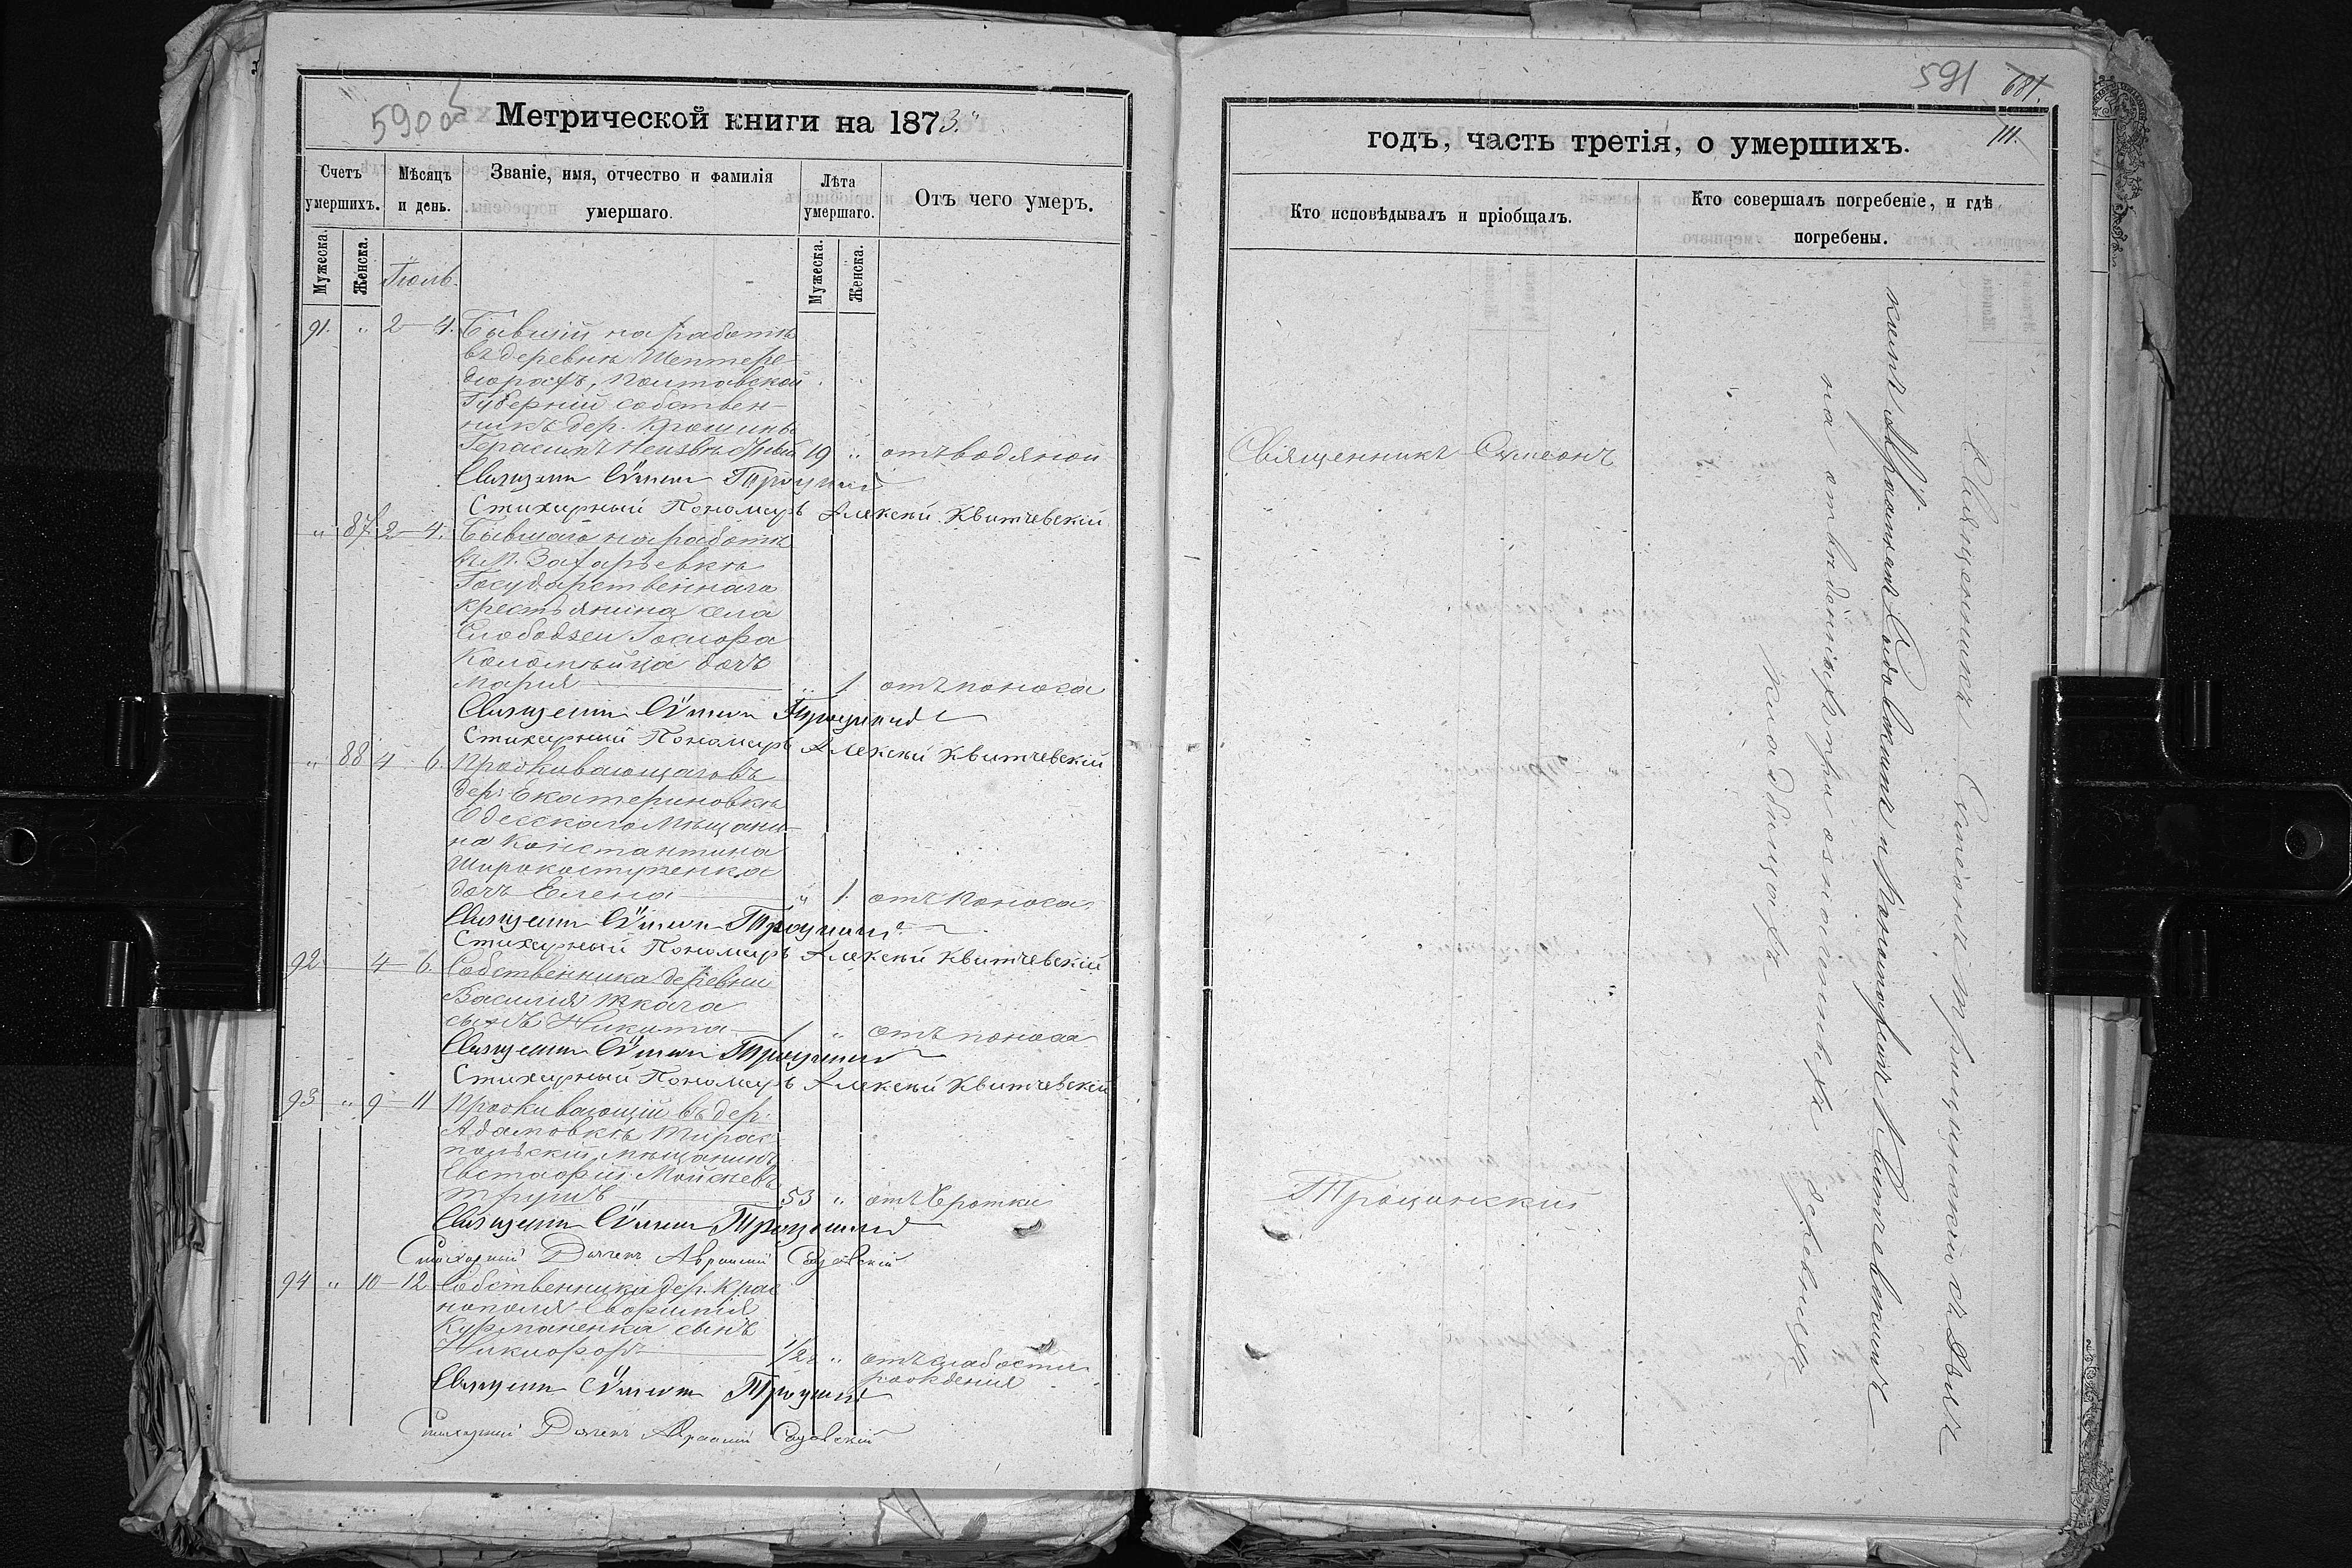 590об
Метрической книги на 1873.
Счетъ умершихъ.
Мѣсяцъ и день.
Званіе, имя, отчество и фамилія умершаго.
Лѣта умершаго.
Отъ чего умеръ.
Мужеска.
Женска.
Мужеска.
Женска.
Іюль.
91. " 2 4. Бывшій на работѣ
въ деревнѣ
Полтавской
Губерніи собствен-
никъ дер.
Герасимъ Неизвѣстный 19 " отъ водяной
Священникъ Сѵмеонъ Трощинскій
Стихарный Пономарь Алексѣй Квитчевскій
" 87 2 4. Бывшаго на работѣ
въ м. Захарьевкѣ
Государственнаго
крестьянина села
Слободзеи
Коломѣйца дочь
Марія " 1 отъ поноса
Священникъ Сѵмеонъ Трощинскій
Стихарный Пономарь Алексѣй Квитчевскій
" 88 4 6. Проживающаго въ
дер. Екатериновкѣ
Одесскаго мѣщани-
на Константина
Широкоступенка
дочь Елена " 1. отъ поноса
Священникъ Сѵмеонъ Трощинскій
Стихарный Пономарь Алексѣй Квитчевскій
92 4 6 Собственника деревни
Василія Ткача
сынъ Никита 1 " отъ поноса
Священникъ Сѵмеонъ Трощинскій
Стихарный Пономарь Алексѣй Квитчевскій
93 " 9 11 Проживающій въ дер.
Адамовкѣ Тирас-
польскій мѣщанинъ
Евстафій Мойсѣевъ
53 " отъ
Священникъ Сѵмеонъ Трощинскій
Стихарный Дьячекъ Авраамій Садовскій
94 " 10 12 Собственника дер. Крас
нополя
Курманенка сынъ
Никифоръ 1/2 " отъ слабости
рожденія
Священникъ Сѵмеонъ Трощинскій
Стихарный Дьячекъ Авраамій Садовскій
591
681.
111.
годъ, часть третія, о умершихъ.
Кто исповѣдывалъ и пріобщалъ.
Кто совершалъ погребеніе, и гдѣ
погребены.
Священникъ Сѵмеонъ
Трощинскій
Священникъ Сѵмеонъ Трощинскій съ Дьяч
комъ Авраамомъ Садовскимъ и Пономаремъ А. Квитчевскимъ
на отвѣденныхъ при означенныхъ деревняхъ
кладбищахъ